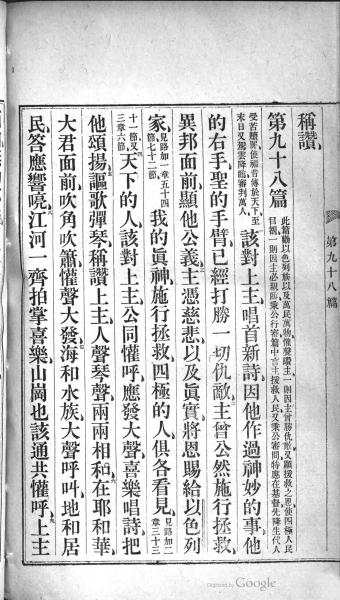 稱讚、
第九十八篇 此篇勸以色列族以及萬民萬物、惟聲讚主、一則因主曾勝仇敵、又顯援救之恩、使四極人民
目覩、一則因主必親臨、乘公行審、篇中言主援救人民、又乘公審問、特應在基督先降生代人
受苦贖罪、使福音傳於天下、至
末日又駕雲降臨、審判萬人、
該對上主唱首新詩、因他作過神妙的事、他
的右手、聖的手臂、已經打勝一切仇敵、主曾公然施行拯救、
異邦面前、顯他公義、主憑慈悲、以及眞實、將恩賜給以色列
家、見路加一章五十四
節、七十二節、
我的眞神、施行拯救、四極的人、俱各看見、見路加二
章三十三
十一節、又
三章六節、
天下的人、該對上主、公同懽呼、應發大聲、喜樂唱詩、把
他頌揚、謳歌彈琴、稱讚上主、人聲琴聲、兩兩相和、在耶和華
大君面前、吹角吹簫、懽聲大發、海和水族、大聲呼叫、地和居
民、答應響喨、江河一齊、拍掌喜樂、山崗也該、通共懽呼、上主
第九十八篇
Digitized by Google